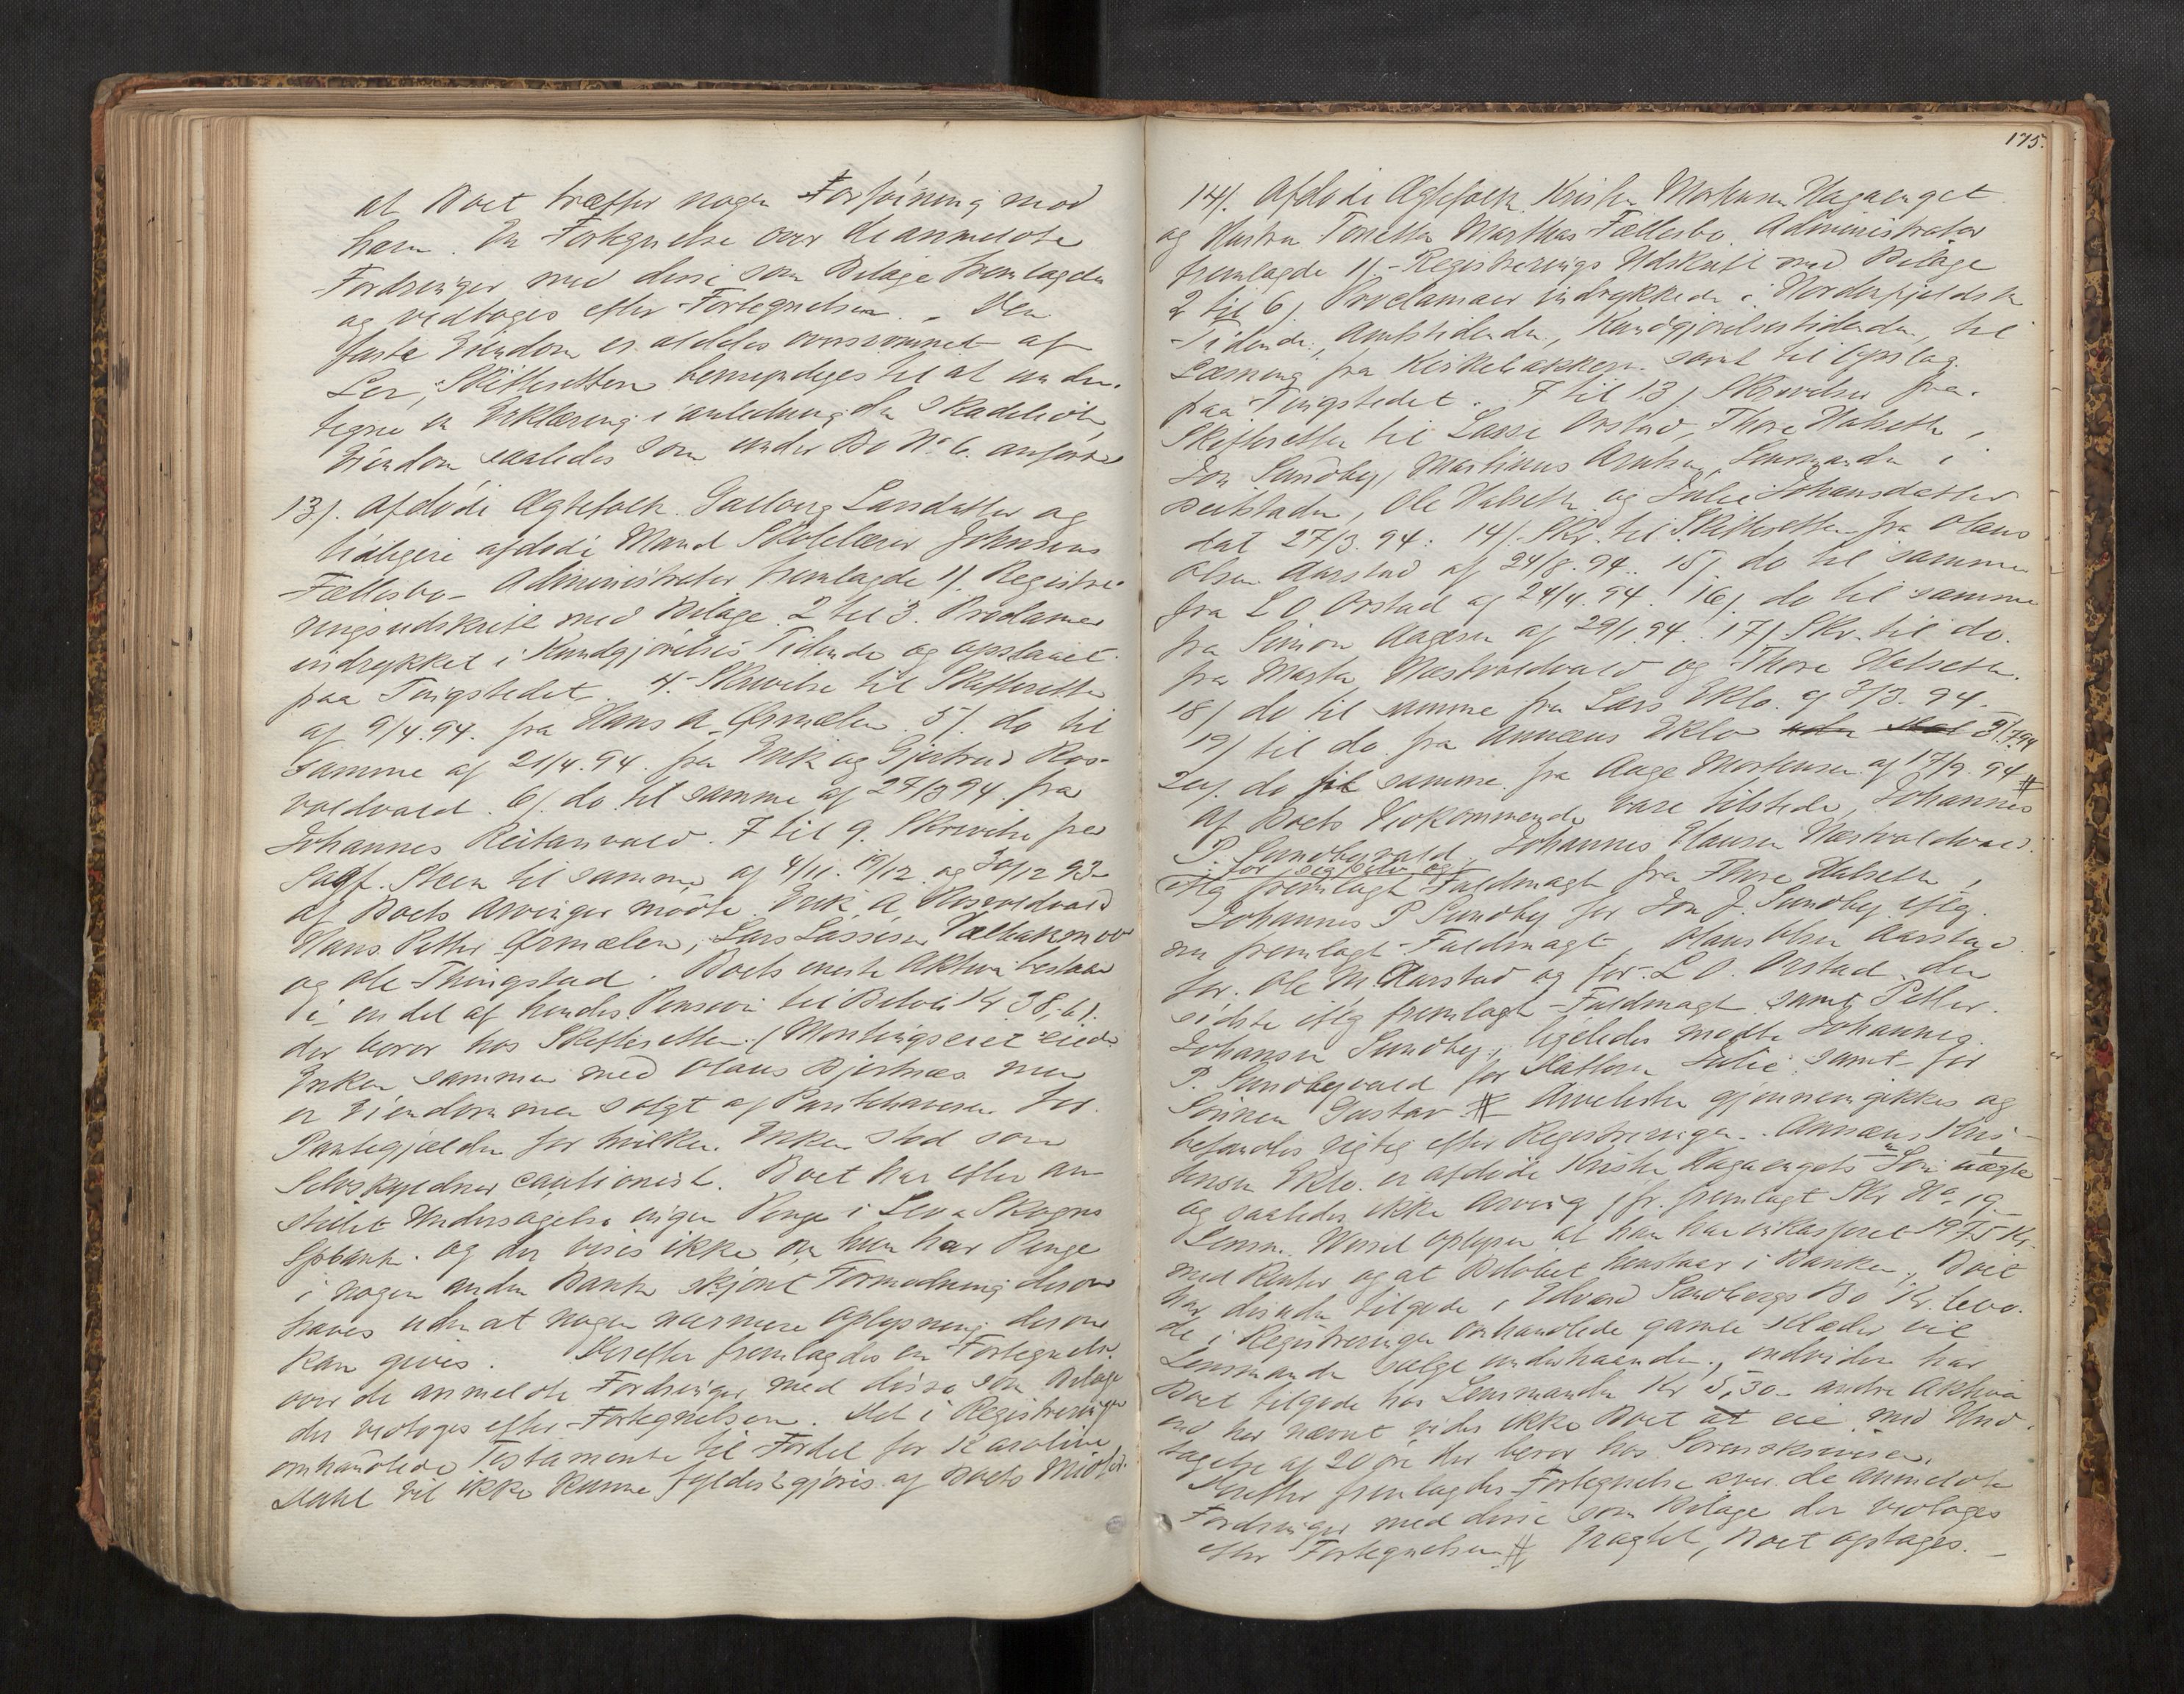 at Boet træffer nogen Forføining mod
ham. En Fortegnelse over de anmeldte
Fordringer med disse som Bilage fremlagdes
og vedtoges efter Fortegnelsen. - Den
faste Eiendom er aldeles oversvømmet af
Ler, Skifteretten bemyndiges til at under-
tegne en Erklæring i anledning den skadelidte
Eiendom saaledes som under Bo No 6. anført
13). Afdøde Ægtefolk Larsdatter og
tidligere afdøde Mand Skolelærer Johnsens
Fællesbo - Administrator fremlagde 1). Registre-
ringsudskrift med Bilage 2 til 3. Proclamer
indrykket i Kundgjørelses Tidende og opslaaet
paa Tingstedet. 4. Skrivelse til Skifteretten
af 9/4.94. fra Hans A. Ørmælen. 5). do til
samme af 21/4.94. fra Erik og Gjertrud Ros-
voldvald. 6). do til samme af 27/3 94. fra
Johannes Reitanvald. 7 til 9. Skrivelse fra
Sagf. Steen til samme af 4/11. 19/12. og 30/12 93
af Boets Arvinger mødte Erik A. Rosvoldvald
Hans Petter Ørmælen, Lars Lassesen
og Ole Thingstad. Boets eneste Aktiva bestaar
i en del af hendes Pension til Beløb Kr 38,61.
der beror hos Skifteretten. (
Enken sammen med Olaus Bjertnæs men
er Eiendommen solgt af Panthaveren for
Pantegjælden for hvilken Enken stod som
Selvskyldner cautionist. Boet har efter an-
stillet Undersøgelse ingen Penge i Levanger Skogns
Spbank. og der vides ikke om hun har Penge
i nogen anden Bank skjønt Formodning derom
haves uden at nogen nærmere oplysning derom
kan gives. Derefter fremlagdes en Fortegnelse
over de anmeldte Fordringer med disse som Bilage
der vedtoges efter Fortegnelsen. Det i Registreringen
omhandlede Testamente til Fordel for Karoline
Dahl vil ikke kunne fyldestgjøres af Boets Midler.
175.
14). Afdøde Ægtefolk Krister Mortensen Hagaenget
og Hustru Marthas Fællesbo. Administrator
fremlagde 1). Registrerings Udskrift med Bilage
2 til 6). Proclamaer indrykkede i Nordenfjeldsk
Tidende, Amtstidende, Kundgjørelsestidende, til
Læsning fra Kirkebakken samt til Opslag
paa Tingstedet. 7 til 13) Skrivelse fra
Skifteretten til Lasse Orstad, Thore Halseth,
Jon Sundby, Martinus Arntsen, Lensmanden i
Beitstaden, Ole Halseth og Julie Johansdatter
dat 27/3. 94. 14). Skr. til Skifteretten fra Olaus
Olsen Aarstad af 24/8. 94. 15) do til samme
fra L O Orstad af 24/4. 94. 16). do til samme
fra Simon Aagesen af 29/1 94. 17). Skr. til do.
fra Marta Næstvoldvald og Thore Halseth.
18) do til samme fra Lars Eklo af 3/3. 94.
19) til do fra Annæus Eklo
20). do til samme fra Aage Mortensen af 17/9. 94 #
Af Boets Vedkommende vare tilstede, Johannes
P. Sundbyvald, Johannes Hansen Næstvoldvald
for sig selv og
iflg fremlagt Fuldmagt fra Thore Halseth,
Johannes P Sundby for Jon J. Sundby iflg.
nu fremlagt Fuldmagt, Olaus Olsen Aarstad
for Ole M. Aarstad og for L O. Orstad den
sidste iflg fremlagt Fuldmagt samt Petter
Johansen Sundby, ligeledes mødte Johannes
P. Sundbyvald for Datteren Julie samt for
Sønnen Gustav. # Arvelisten gjennemgikkes og
befandtes rigtig efter Registreringen. Annæus Kri-
stensen Eklo er afdøde Krister Hagaengets Søn uægte
og saaledes ikke Arving jfr. fremlagt Skr No 19
Lensm. Wessel oplyser at han har inkasseret 1975 Kr.
med Renter og at Beløbet henstaar i Banken, Boet
har desuden tilgode i Edvard Sandbergs Bo Kr.
de i Registreringen omhandlede gamle Klæder vil
Lensmanden sælge underhaanden, endvidere har
Boet tilgode hos Lensmanden Kr 5,30 - andre Aktiva
end her nævnt vides ikke Boet at eie med Und-
tagelse af 20 øre der beror hos Sorenskriveren.
Derefter fremlagdes Fortegnelse over de anmeldte
Fordringer med disse som Bilage der vedtoges
efter Fortegnelsen # Fragtet, Boet optages. -